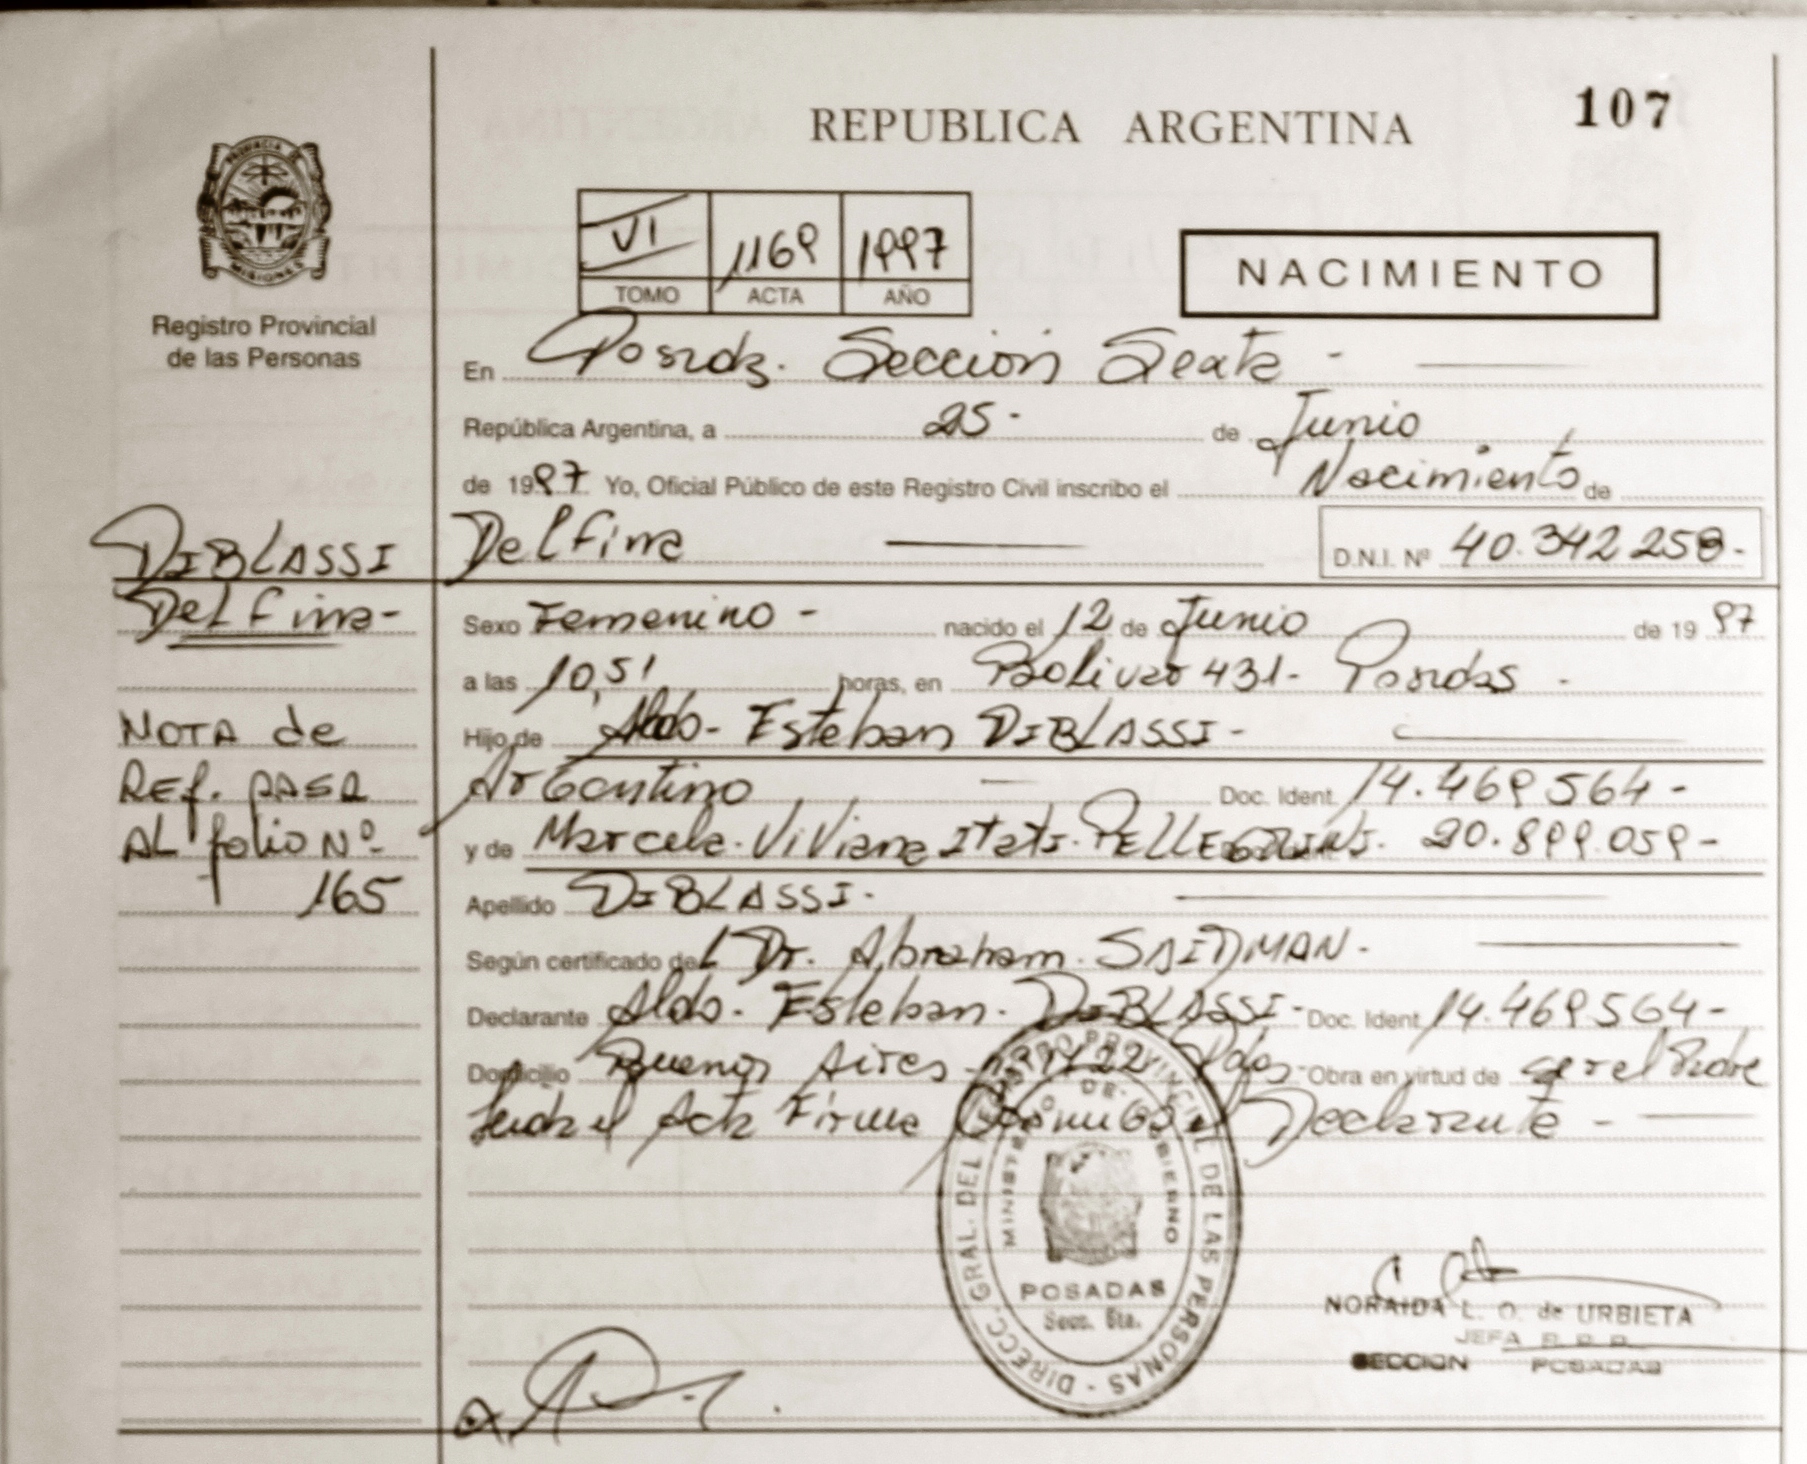 107
REPUBLICA ARGENTINA
PROVINCIA DE
MISIONES
Registro Provincial
de las Personas
VI 1169 1997
TOMO ACTA AÑO
NACIMIENTO
En Posadas. Sección Sexta -
República Argentina, a 25- de Junio
de 1997 Yo, Oficial Público de este Registro Civil inscribo el Nacimiento de
DIBLASSI Delfina D.N.I. Nº 40.342 258-
Delfina-
Sexo Femenino - nacido el 12 de Junio de 19 97
a las 10,51 horas, en Bolivar 431- Posadas -
NOTA de
Hijo de Aldo- Esteban DIBLASSI-
REf. PASA
Argentino Doc. Ident. 14.469 564-
AL folio Nº
y de Marcela. Viviana Itatí. PELLEGRINI. 20.899.059-
165
Apellido DIBLASSI-
Según certificado del Dr. Abraham. SAIDMAN-
Declarante Aldo- Esteban- DIBLASSI- Doc. Ident. 14.469564-
Domicilio Buenos Aires Pdas- Obra en virtud de ser el Padre
Leida el Acta Firma Conmigo el Declarante -
DIRECC. GRAL. DEL REGISTRO PROVINCIAL DE LAS PERSONAS -
MINISTERIO DE GOBIERNO
POSADAS
Secc. 6ta.
NORAIDA L. O. de URBIETA
JEFA R. P. P.
SECCION POSADAS